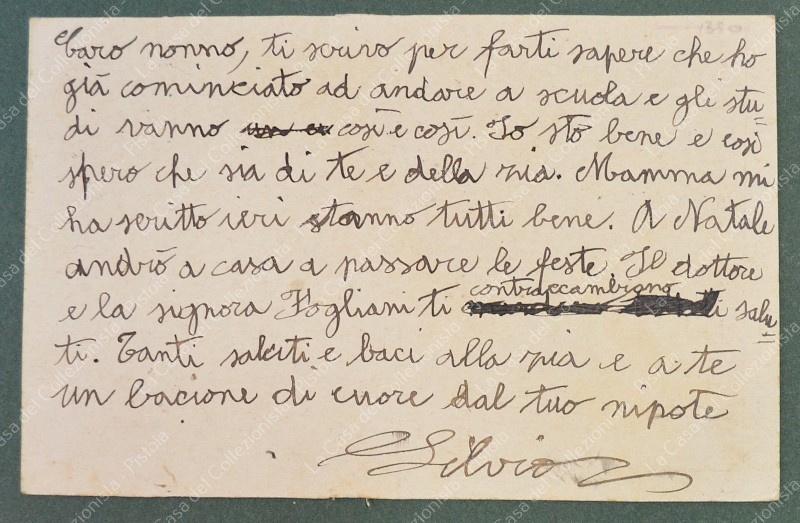 Caro nonno, ti scrivo per farti sapere che ho
già cominciato ad andare a scuola e gli stu=
di vanno così e così. Io sto bene e così
spero che sia di te e della zia. Mamma mi
ha scritto ieri stanno tutti bene. A Natale
andrò a casa a passare le feste. Il dottore
e la signora Fogliani ti contraccambiano i salu=
ti. Tanti saluti e baci alla zia e a te
un bacione di cuore dal tuo nipote
Silvio
La Casa del Collezionista - Pistoia